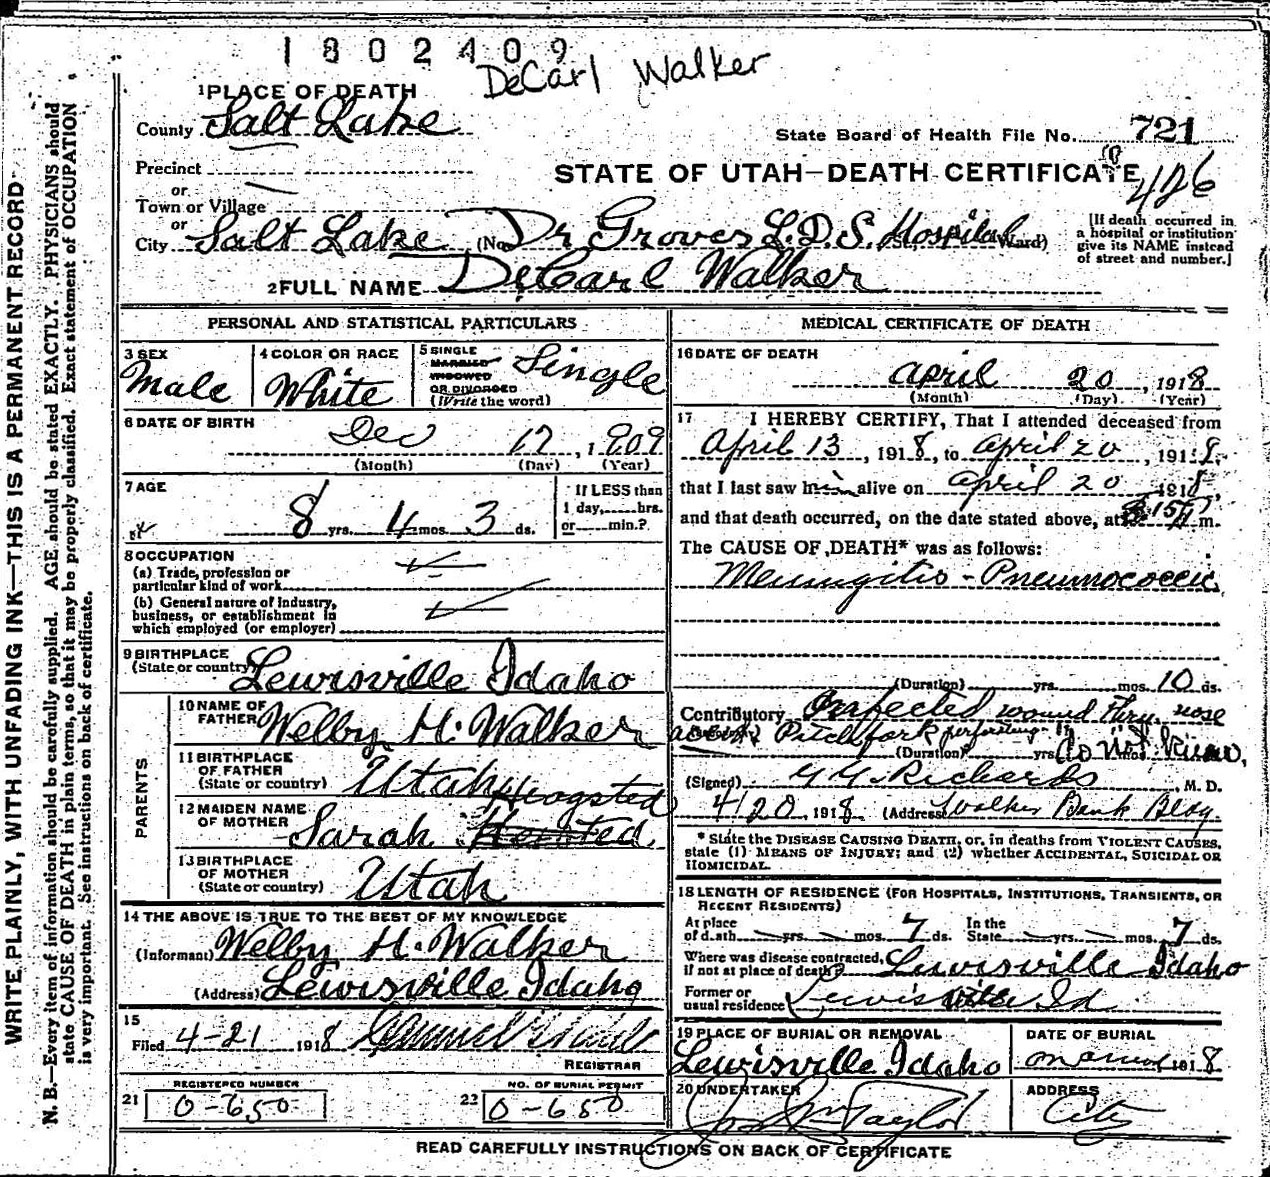 1802409
DeCarl Walker
1 PLACE OF DEATH
County Salt Lake
State Board of Health File No. 721
Precinct
STATE OF UTAH—DEATH CERTIFICATE
426
or
Town or Village
or
City Salt Lake (No. Dr Groves L.D.S. Hospital Ward)
[If death occurred in
a hospital or institution
give its NAME instead
of street and number.]
2 FULL NAME DeCarl Walker
PERSONAL AND STATISTICAL PARTICULARS
3 SEX
Male
4 COLOR OR RACE
White
5 SINGLE
MARRIED
WIDOWED
OR DIVORCED
(Write the word)
Single
6 DATE OF BIRTH
Dec 17, 1909
(Month) (Day) (Year)
7 AGE
8 yrs. 4 mos. 3 ds.
If LESS than
1 day, hrs.
or min.?
8 OCCUPATION
(a) Trade, profession or
particular kind of work
(b) General nature of industry,
business, or establishment in
which employed (or employer)
9 BIRTHPLACE
(State or country) Lewisville Idaho
PARENTS
10 NAME OF
FATHER Welby H. Walker
11 BIRTHPLACE
OF FATHER
(State or country) Utah
12 MAIDEN NAME
OF MOTHER
Hoagsted
Sarah
13 BIRTHPLACE
OF MOTHER
(State or country) Utah
14 THE ABOVE IS TRUE TO THE BEST OF MY KNOWLEDGE
(Informant) Welby H. Walker
(Address) Lewisville Idaho
15
Filed 4-21 1918
REGISTRAR
REGISTERED NUMBER
21 0-650
NO. OF BURIAL PERMIT
22 0-650
MEDICAL CERTIFICATE OF DEATH
16 DATE OF DEATH
April 20, 1918
(Month) (Day) (Year)
17 I HEREBY CERTIFY, That I attended deceased from
April 13, 1918, to April 20, 1918,
that I last saw him alive on April 20 1918,
and that death occurred, on the date stated above, at m.
The CAUSE OF DEATH* was as follows:
Meningitis - Pneumococcic
(Duration) yrs. mos. 10 ds.
Contributory Infected wound thru nose
Pitchfork perforating
(Duration) yrs. Do not know,
(Signed) G. G. Richards, M. D.
4/20 1918 (Address) Walker Bank Bldg.
* State the DISEASE CAUSING DEATH, or, in deaths from VIOLENT CAUSES,
state (1) MEANS OF INJURY; and (2) whether ACCIDENTAL, SUICIDAL OR
HOMICIDAL.
18 LENGTH OF RESIDENCE (FOR HOSPITALS, INSTITUTIONS, TRANSIENTS, OR
RECENT RESIDENTS)
At place
of death yrs. mos. 7 ds.
In the
State yrs. mos. 7 ds.
Where was disease contracted,
if not at place of death? Lewisville Idaho
Former or
usual residence Lewisville Id
19 PLACE OF BURIAL OR REMOVAL
Lewisville Idaho
DATE OF BURIAL
1918
20 UNDERTAKER
Taylor
ADDRESS
City
READ CAREFULLY INSTRUCTIONS ON BACK OF CERTIFICATE
WRITE PLAINLY, WITH UNFADING INK—THIS IS A PERMANENT RECORD
N. B.—Every item of information should be carefully supplied. AGE should be stated EXACTLY. PHYSICIANS should
state CAUSE OF DEATH in plain terms, so that it may be properly classified. Exact statement of OCCUPATION
is very important. See instructions on back of certificate.